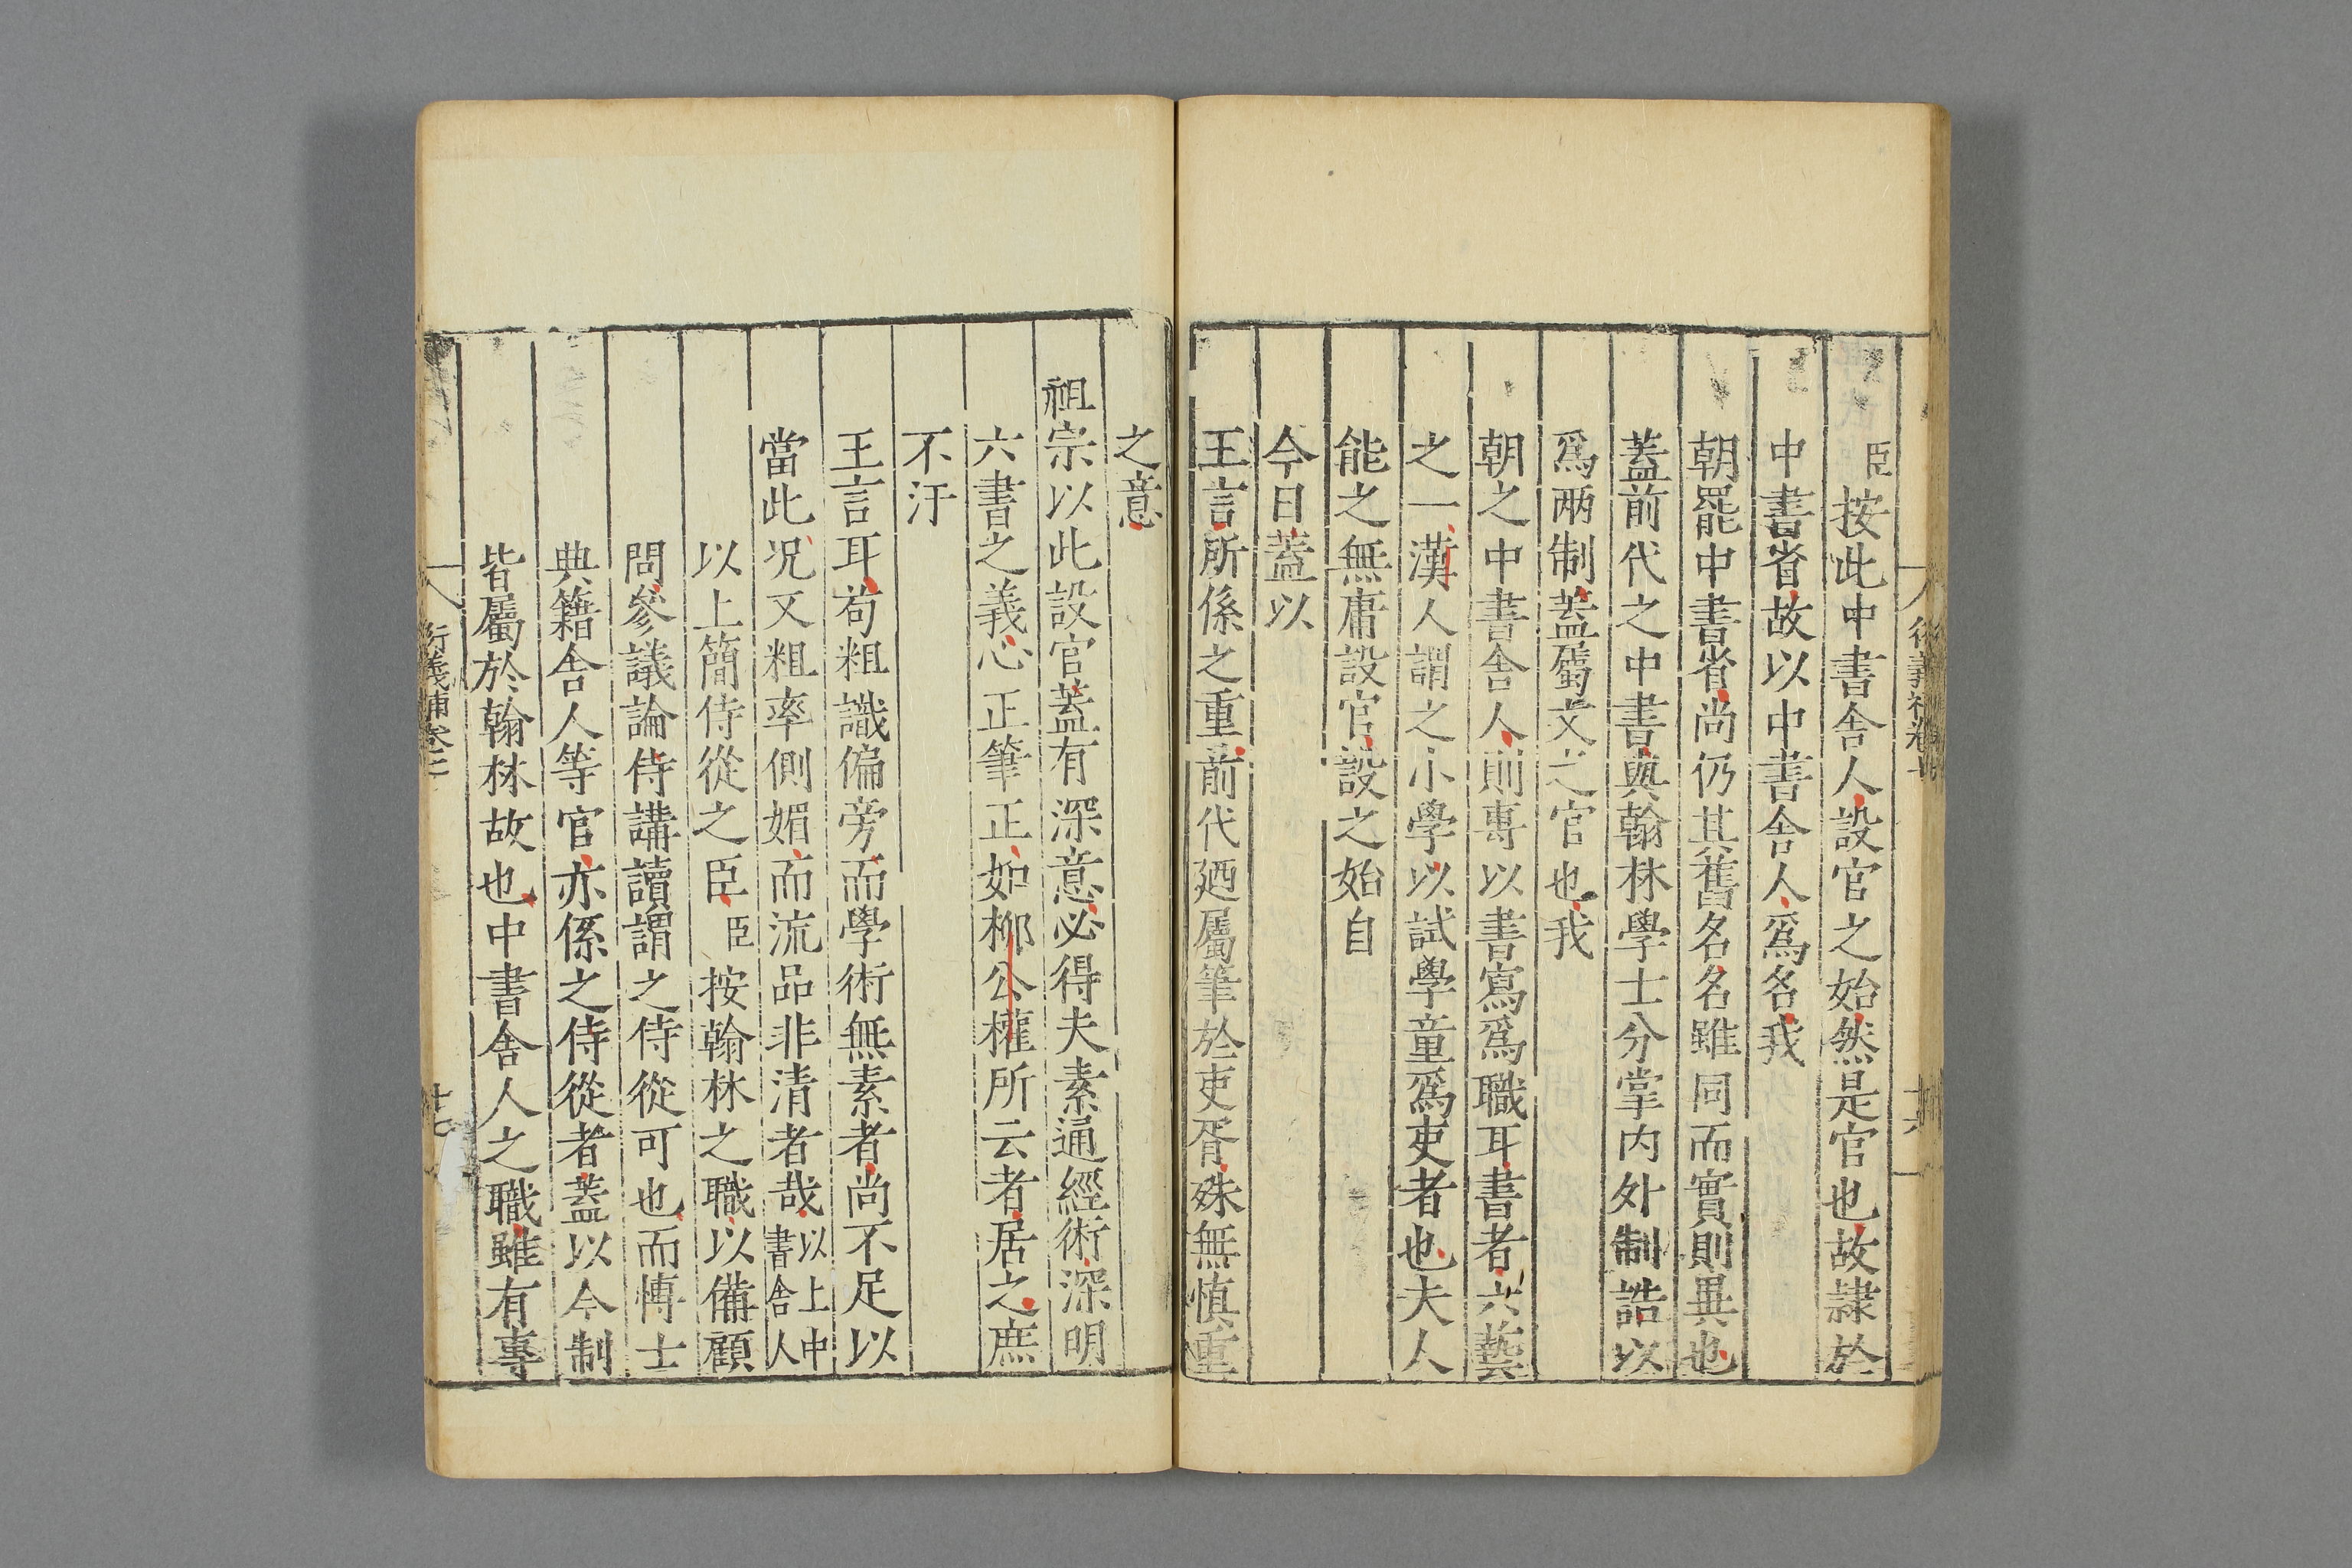 臣按此中書舍人設官之始然是官也故隷於
中書省故以中書舍人爲名我
朝罷中書省尚仍其舊名名雖同而實則異也
蓋前代之中書與翰林學士分掌内外制誥以
爲兩制蓋屬文之官也我
朝之中書舍人則專以書寫爲職耳書者六藝
之一漢人謂之小學以試學童爲吏者也夫人
能之無庸設官設之始自
今日蓋以
王言所係之重前代廼屬筆於吏胥殊無慎重
之意
祖宗以此設官蓋有深意必得夫素通經術深明
六書之義心正筆正如柳公權所云者居之庶
不汙
王言耳苟粗識偏旁而學術無素者尚不足以
當此况又粗率側媚而流品非清者哉以上中書舍人
以上簡侍從之臣臣按翰林之職以備顧
問參議論侍講讀謂之侍從可也而博士
典籍舍人等官亦係之侍從者蓋以今制
皆屬於翰林故也中書舍人之職雖有專
衍義補卷